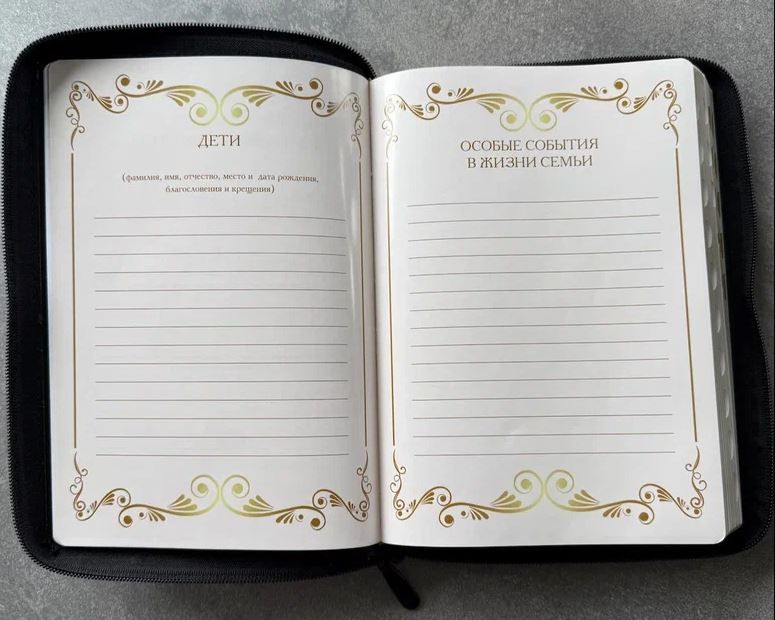 ДЕТИ
(фамилия, имя, отчество, место и дата рождения,
благословения и крещения)
ОСОБЫЕ СОБЫТИЯ
В ЖИЗНИ СЕМЬИ